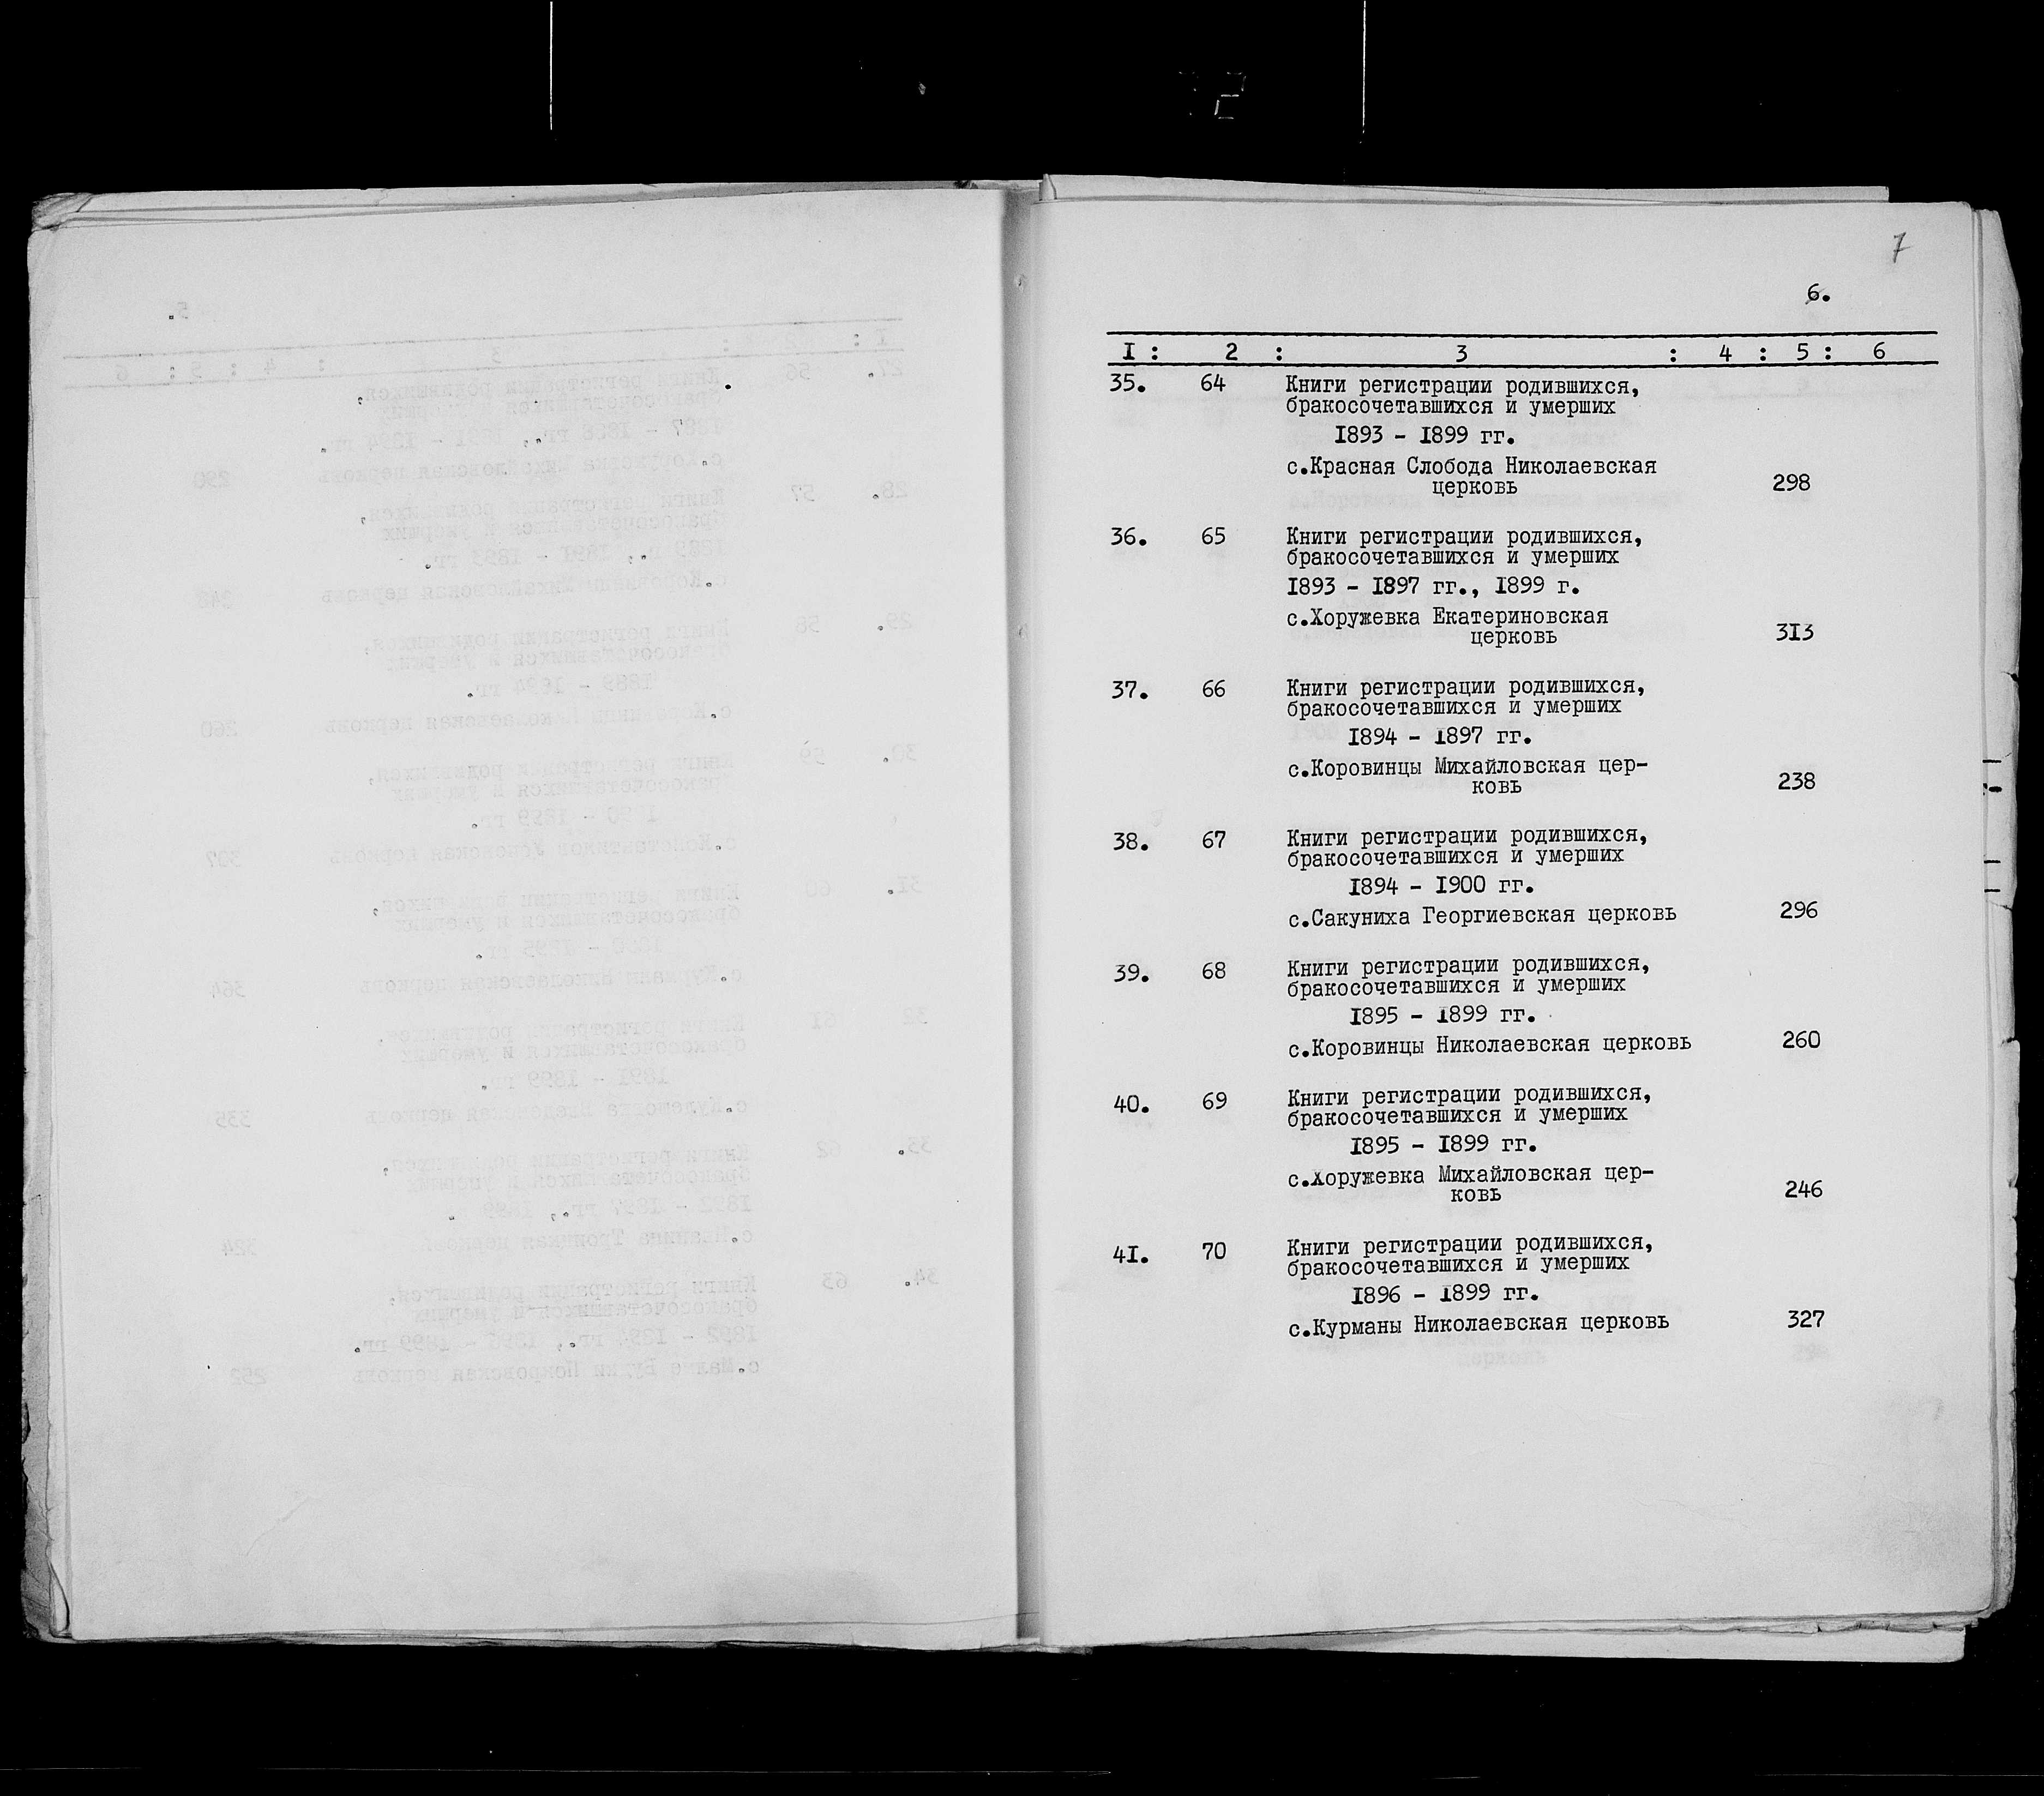 7
6.
I : 2 : 3 : 4 : 5 : 6
35. 64 Книги регистрации родившихся,
бракосочетавшихся и умерших
1893 - 1899 гг.
с.Красная Слобода Николаевская
церковь 298
36. 65 Книги регистрации родившихся,
бракосочетавшихся и умерших
1893 - 1897 гг., 1899 г.
с.Хоружевка Екатериновская
церковь 313
37. 66 Книги регистрации родившихся,
бракосочетавшихся и умерших
1894 - 1897 гг.
с.Коровинцы Михайловская цер-
ковь 238
38. 67 Книги регистрации родившихся,
бракосочетавшихся и умерших
1894 - 1900 гг.
с.Сакуниха Георгиевская церковь 296
39. 68 Книги регистрации родившихся,
бракосочетавшихся и умерших
1895 - 1899 гг.
с.Коровинцы Николаевская церковь 260
40. 69 Книги регистрации родившихся,
бракосочетавшихся и умерших
1895 - 1899 гг.
с.Хоружевка Михайловская цер-
ковь 246
41. 70 Книги регистрации родившихся,
бракосочетавшихся и умерших
1896 - 1899 гг.
с.Курманы Николаевская церковь 327